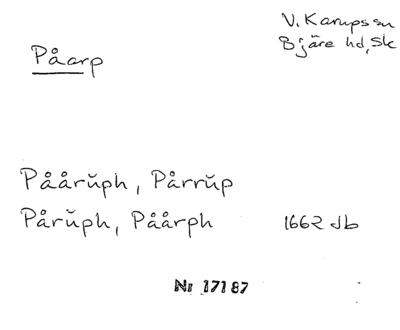 V. Karups sn
Bjäre hd, Sk
Påarp
Pååru̇̆ph, Pårrŭp
Pårŭph, Påårph 1662 Jb
Nr 17187